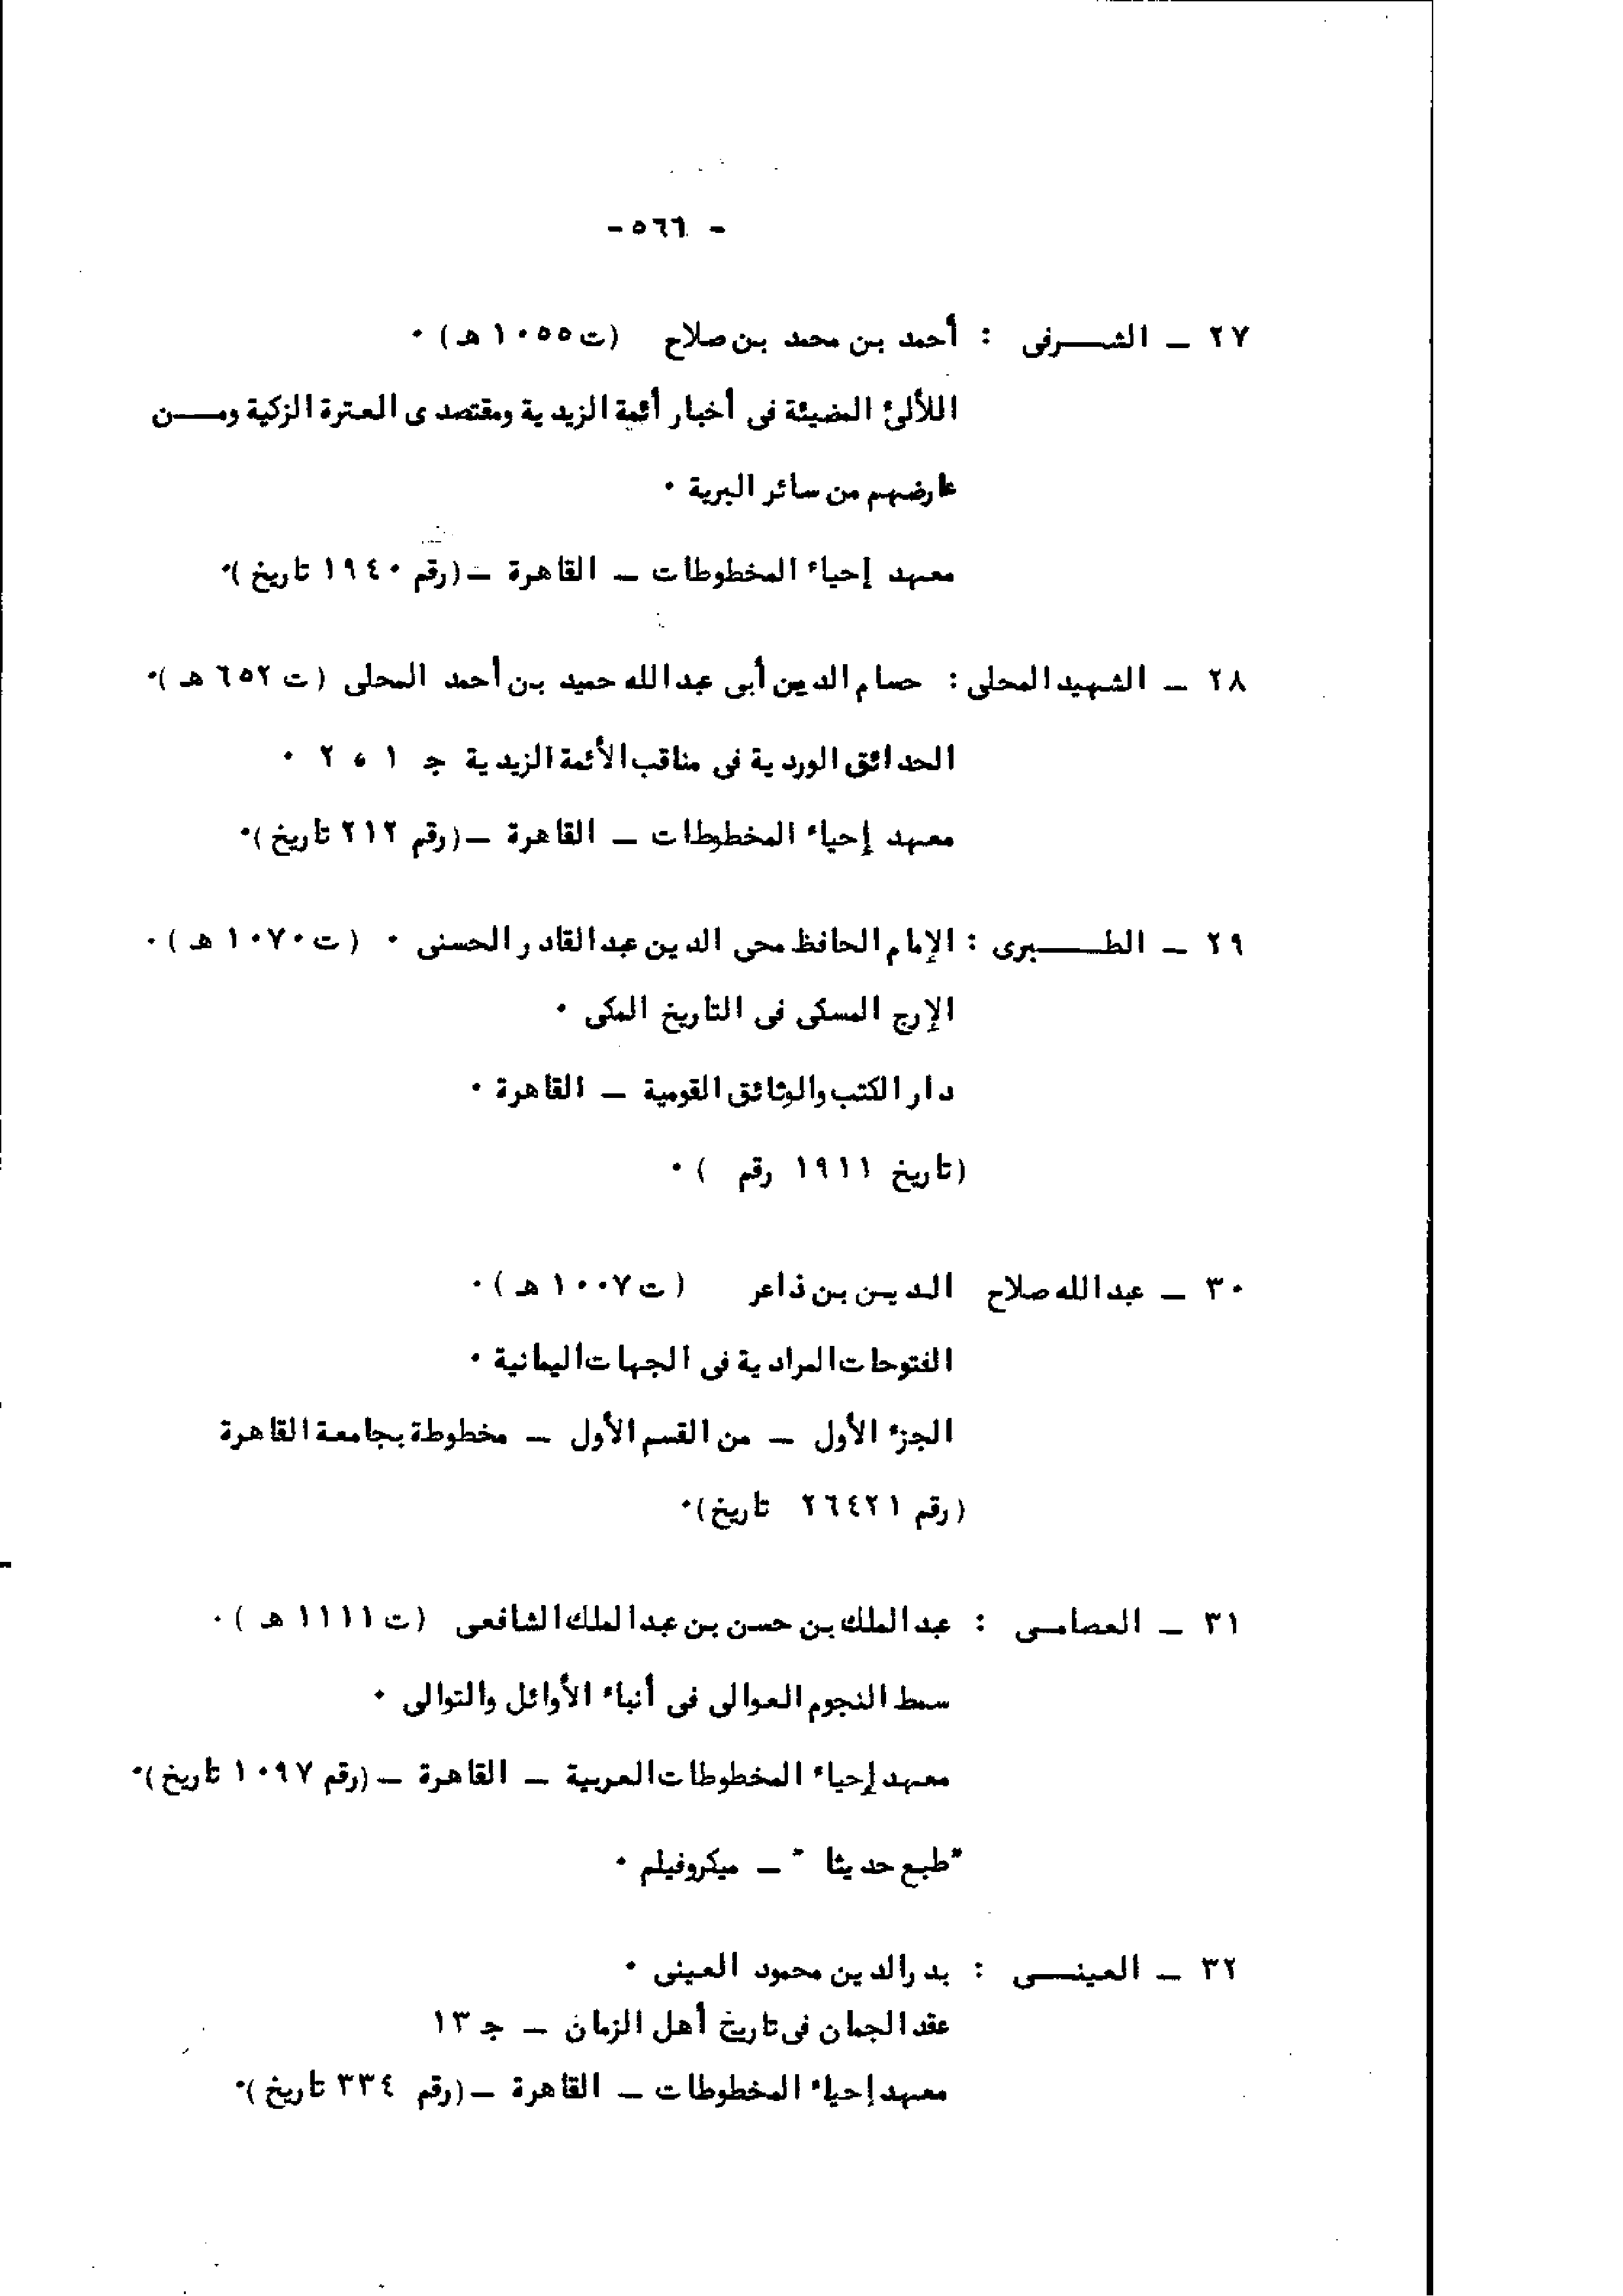 - ٥٦٦ -
٢٧ – الشرفى : أحمد بن محمد بن صلاح (ت ١٠٥٥ هـ) ٠
اللآلئ المضيئة فى أخبار أئمة الزيدية ومقتصدى العترة الزكية ومن
عارضهم من سائر البرية ٠
معهد إحياء المخطوطات – القاهرة – (رقم ١٩٤٠ تاريخ)٠
٢٨ – الشهيد المحلى : حسام الدين أبى عبد الله حميد بن أحمد المحلى (ت ٦٥٢ هـ)٠
الحدائق الوردية فى مناقب الأئمة الزيدية جـ ١ ، ٢ ٠
معهد إحياء المخطوطات – القاهرة – (رقم ٢١٢ تاريخ)٠
٢٩ – الطبرى : الإمام الحافظ محى الدين عبد القادر الحسنى ٠ (ت ١٠٧٠ هـ) ٠
الإرج المسكى فى التاريخ المكى ٠
دار الكتب والوثائق القومية – القاهرة ٠
(تاريخ ١٩١١ رقم ) ٠
٣٠ – عبد الله صلاح الدين بن ذاعر (ت ١٠٠٧ هـ) ٠
الفتوحات المرادية فى الجهات اليمانية ٠
الجزء الأول – من القسم الأول – مخطوطة بجامعة القاهرة
(رقم ٢٦٤٢١ تاريخ)٠
٣١ – العصامى : عبد الملك بن حسن بن عبد الملك الشافعى (ت ١١١١ هـ) ٠
سمط النجوم العوالى فى أنباء الأوائل والتوالى ٠
معهد إحياء المخطوطات العربية – القاهرة – (رقم ١٠٩٧ تاريخ)٠
"طبع حديثا " – ميكروفيلم ٠
٣٢ – العينى : بدر الدين محمود العينى ٠
عقد الجمان فى تاريخ أهل الزمان – جـ ١٣
معهد إحياء المخطوطات – القاهرة – (رقم ٣٣٤ تاريخ)٠